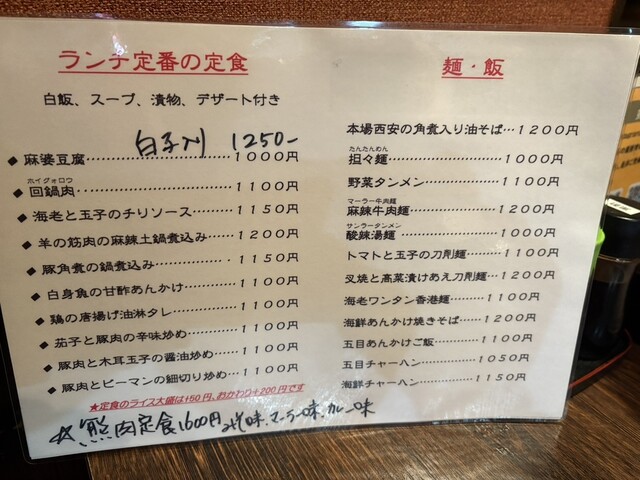 ランチ定番の定食
白飯、スープ、漬物、デザート付き
白子入り 1250-
◆麻婆豆腐…1000円
ホイグォロウ
◆回鍋肉…1100円
◆海老と玉子のチリソース…1150円
◆羊の筋肉の麻辣土鍋煮込み…1200円
◆豚角煮の鍋煮込み…1150円
◆白身魚の甘酢あんかけ…1100円
◆鶏の唐揚げ油淋タレ…1100円
◆茄子と豚肉の辛味炒め…1100円
◆豚肉と木耳玉子の醤油炒め…1100円
◆豚肉とピーマンの細切り炒め…1100円
★定食のライス大盛は+50円、おかわり+200円です
☆熊肉定食1600円 みそ味、マーラー味、カレー味
麺・飯
本場西安の角煮入り油そば…1200円
たんたんめん
担々麺…1000円
野菜タンメン…1100円
マーラー牛肉麺
麻辣牛肉麺…1200円
サンラータンメン
酸辣湯麺…1000円
トマトと玉子の刀削麺…1100円
叉焼と高菜漬けあえ刀削麺…1200円
海老ワンタン香港麺…1100円
海鮮あんかけ焼きそば…1200円
五目あんかけご飯…1100円
五目チャーハン…1050円
海鮮チャーハン…1150円